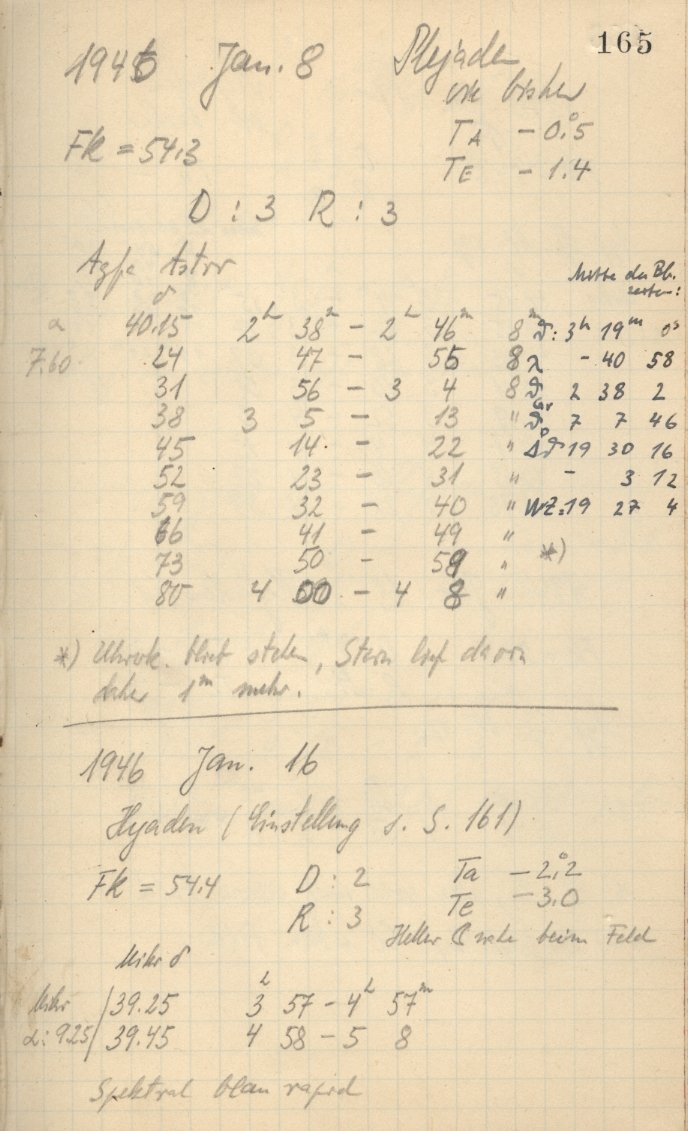 165
1946 Jan. 8 Plejaden
wie bisher
FK = 54.3 TA - 0°.5
TE - 1.4
D : 3 R : 3
Agfa Astro
Mitte der Bb.
zeiten:
δ
α 40.15 2h 38m - 2h 46m 8m ϑ: 3h 19m 0s
7.60 24 47 - 55 8 λ - 40 58
31 56 - 3 4 8 ϑGr 2 38 2
38 3 5 - 13 " ϑo 7 7 46
45 14 - 22 " Δϑ 19 30 16
52 23 - 31 " - 3 12
59 32 - 40 " WZ: 19 27 4
66 41 - 49 "
73 50 - 59 " *)
80 4 00 - 4 8 "
*) Uhrwk. blieb stehen, Stern lief davon
daher 1m mehr.
1946 Jan. 16
Hyaden (Einstellung s. S. 161)
FK = 54.4 D : 2 Ta - 2°.2
R : 3 Te - 3.0
Heller ☾ nahe beim Feld
Mikr δ
Mikr 39.25 3h 57 - 4h 57m
α: 9.25 39.45 4 58 - 5 8
Spektral blau rapid